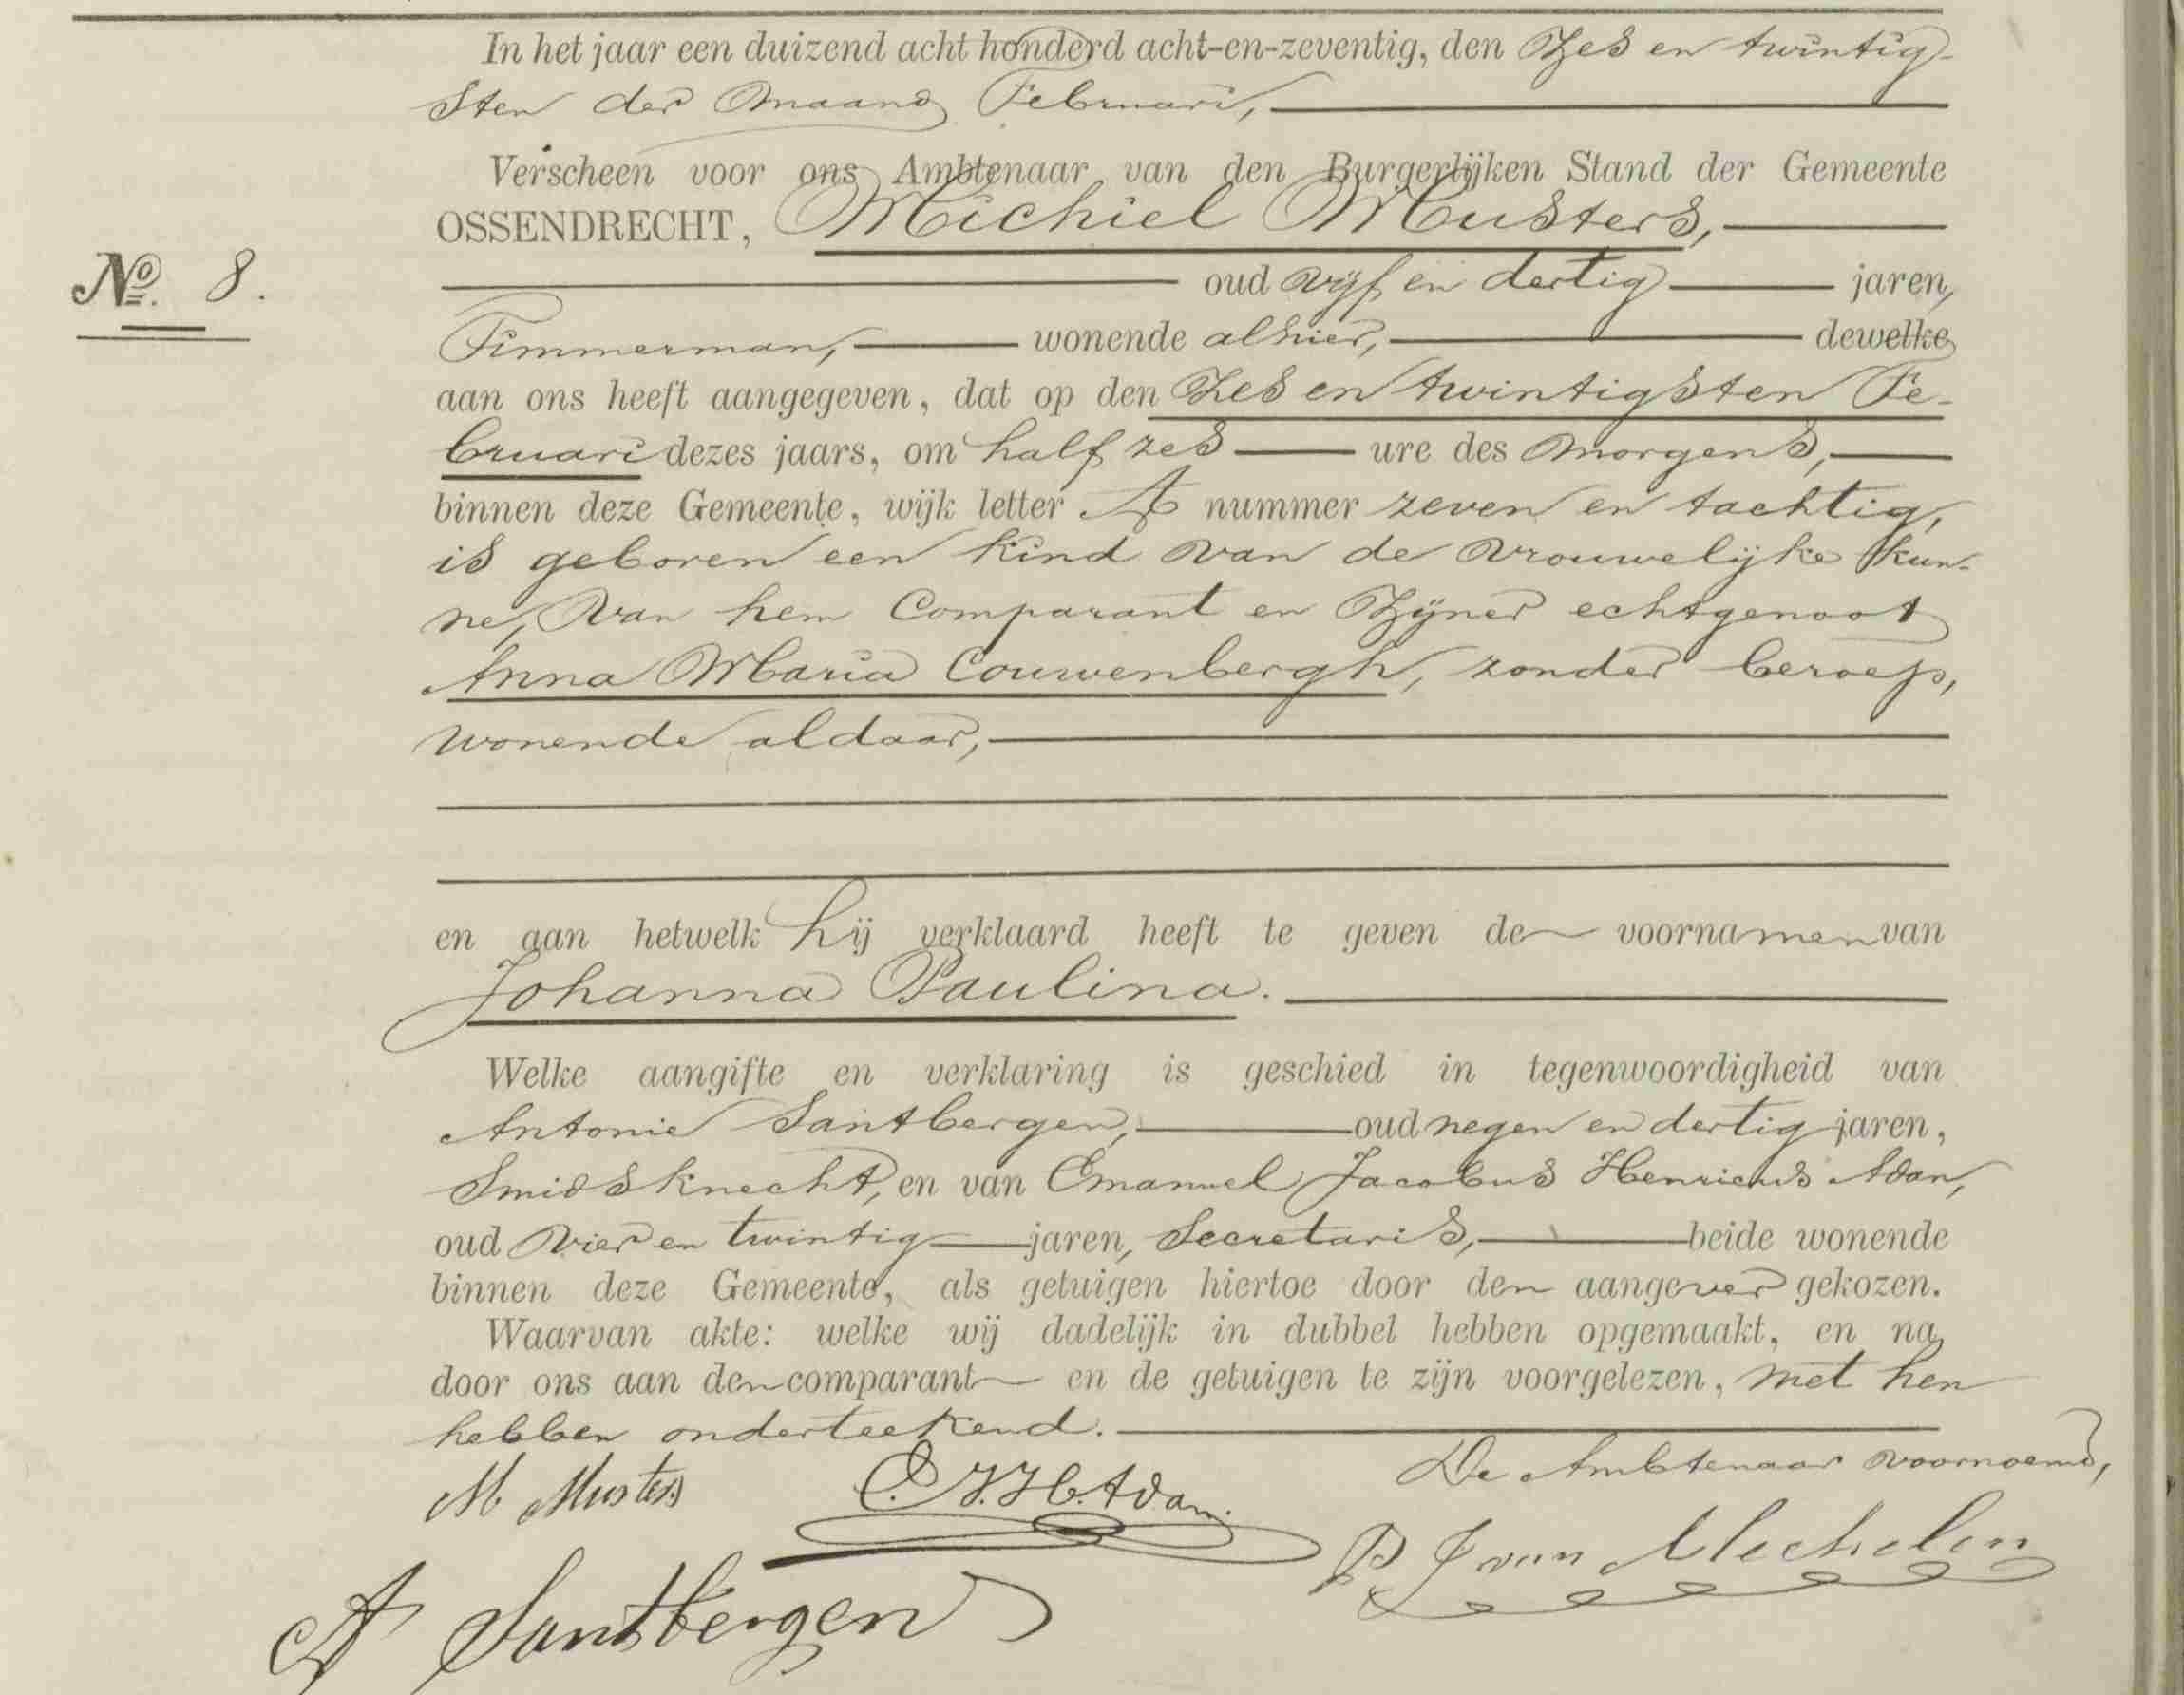 In het jaar een duizend acht honderd acht-en-zeventig, den Zes en twintig-
sten der maand Februari,
Verscheen voor ons Ambtenaar van den Burgerlijken Stand der Gemeente
OSSENDRECHT, Michiel Musters,
No. 8.
oud vijf en dertig jaren,
Timmerman, wonende alhier, dewelke
aan ons heeft aangegeven, dat op den Zes en twintigsten Fe-
bruari dezes jaars, om half zes ure des morgens,
binnen deze Gemeente, wijk letter A nummer zeven en tachtig,
is geboren een kind van de vrouwelijke kun-
ne, van hem Comparant en Zijner echtgenoot
Anna Maria Couwenbergh, zonder beroep,
wonende aldaar,
en aan hetwelk hij verklaard heeft te geven de voornamen van
Johanna Paulina.
Welke aangifte en verklaring is geschied in tegenwoordigheid van
Antonie Santbergen, oud negen en dertig jaren,
Smidsknecht, en van Emanuel Jacobus Henricus Adan,
oud vier en twintig jaren, Secretaris, beide wonende
binnen deze Gemeente, als getuigen hiertoe door den aangever gekozen.
Waarvan akte: welke wij dadelijk in dubbel hebben opgemaakt, en na
door ons aan den comparant en de getuigen te zijn voorgelezen, met hen
hebben onderteekend.
De Ambtenaar voornoemd,
M Musters E.J.H. Adan.
P J van Mechelen
A Santbergen